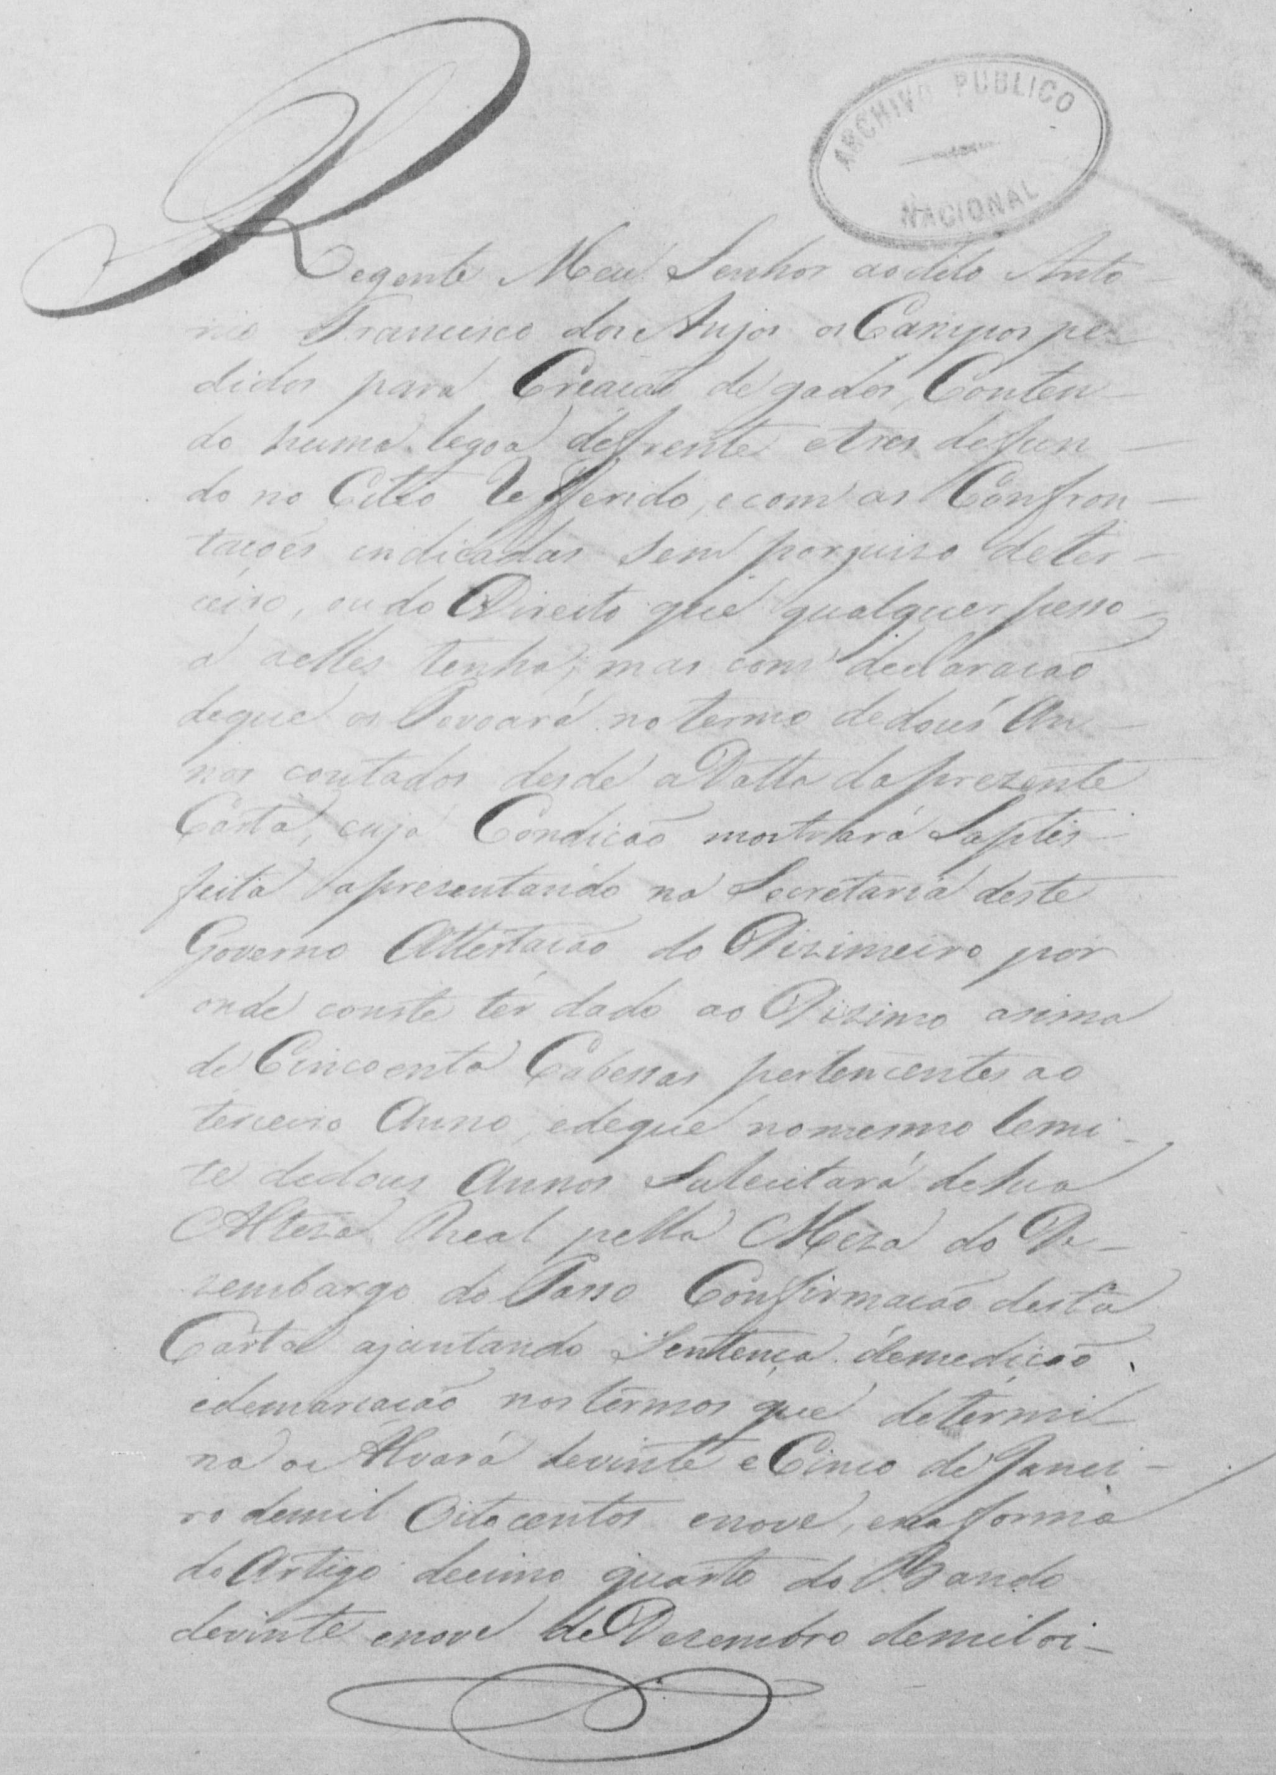 ARCHIVO PUBLICO
NACIONAL
Regente Meu Senhor ao dito Anto
nio Francisco dos Anjos os Campos pe
didos para Creacão de gados, Conten
do huma legoa de frente e tres de fun
do no Citio Refferido, e com as Confron
tacões indicadas sem porjuizo de ter
ceiro, ou do Direito que qualquer pesso
a a elles tenha; mas com declaracão
de que os Povoará no termo de dous An
nos contados desde a Datta da prezente
Carta, cuja Condicão mostrará Saptis
feita apresentando na Secretaria deste
Governo Attestacão do Dizimeiro por
onde conste ter dado ao Dizimo asima
de Cincoenta Cabessas pertencentes ao
terceiro Anno, e de que no mesmo lemi
te de dous Annos Suleutará de Sua
Alteza Real pella Meza do De
zembargo do Passo Confirmacão desta
Carta ajuntando Sentença de medicão
e demarcacão nos termos que determi
na o Alvará de vinte e Cinco de Janei
ro de mil Oitocentos e nove, e na forma
do Artigo decimo quarto do Bando
de vinte e nove de Dezembro de mil oi